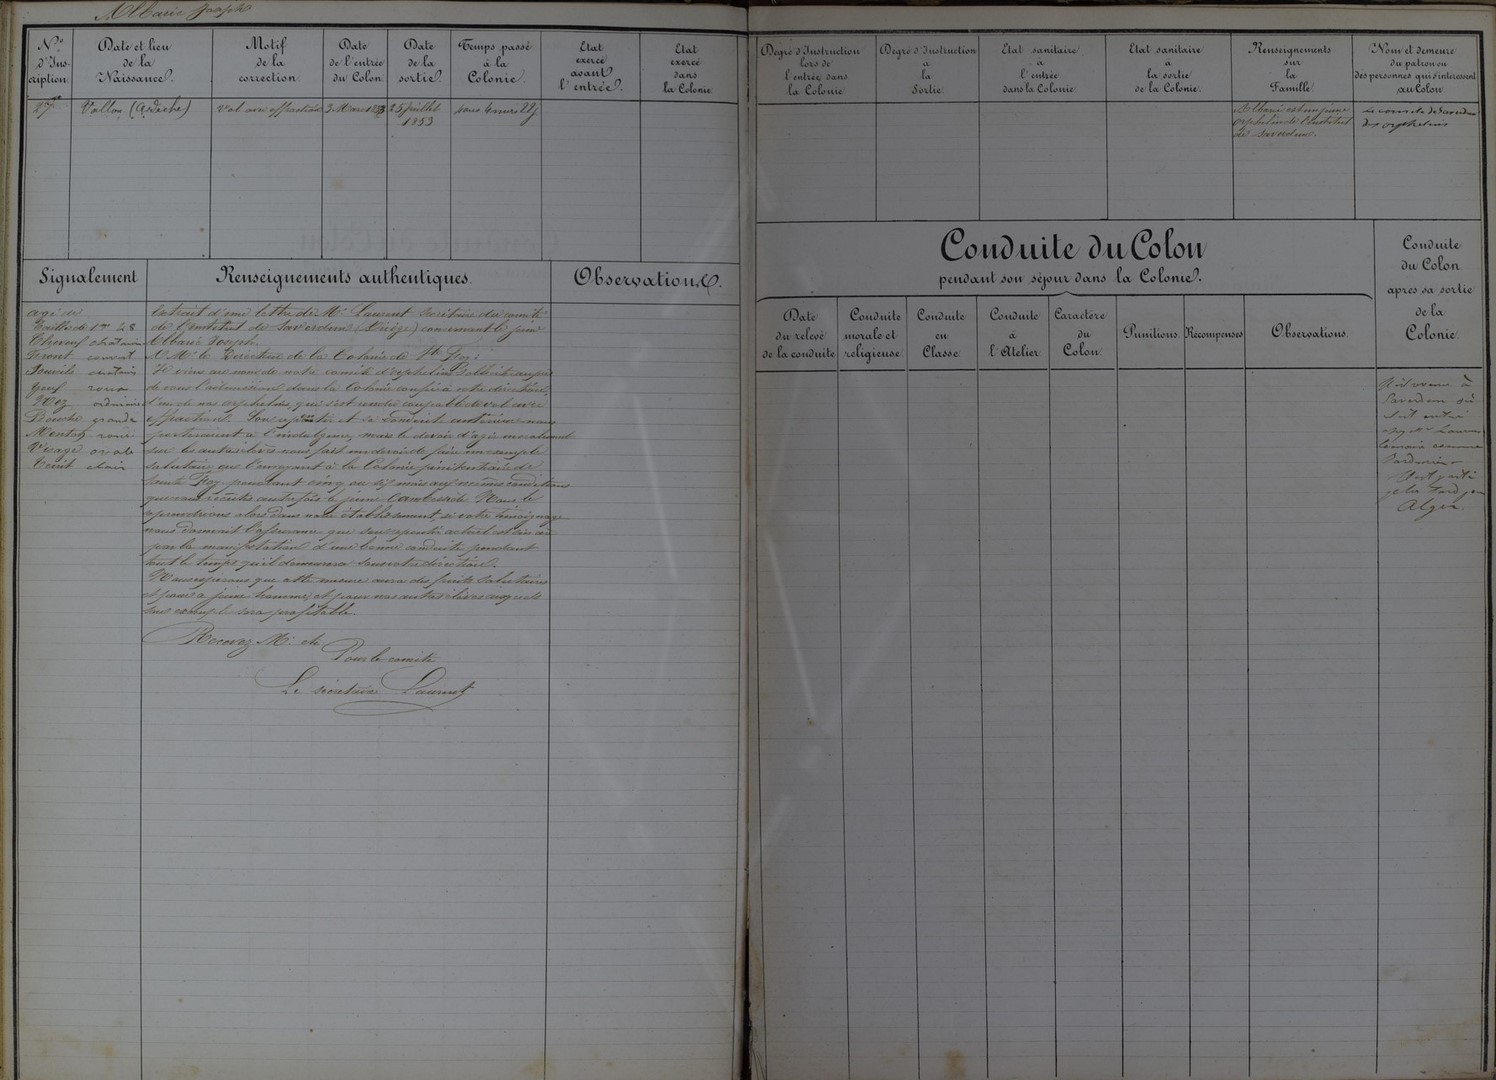 Albaric Joseph
N.o d'Inscription
Date et lieu de la Naissance.
Motif de la correction
Date de l'entrée du Colon
Date de la sortie.
Temps passé à la Colonie.
Etat exercé avant l'entrée.
Etat exercé dans la Colonie
Degré d'Instruction lors de l'entrée dans la Colonie
Degré d'Instruction à la Sortie.
Etat sanitaire à l'entrée dans la Colonie
Etat sanitaire à la sortie de la Colonie.
Renseignements sur la Famille
Nom et demeure du patron ou des personnes qui s'intéressent au Colon
87
Vallon (Ardèche)
Vol avec effraction
3 Mars 1853
25 juillet
1853
4 mois 22 j
Albaric est un jeune
orphelin de l'Institut
de Saverdun.
des orphelins
Signalement
Renseignements authentiques.
Observations.
Conduite du Colon
pendant son séjour dans la Colonie.
Conduite du Colon apres sa sortie de la Colonie.
Date du relevé de la conduite
Conduite morale et religieuse.
Conduite en Classe.
Conduite à l'Atelier.
Caractère du Colon.
Punitions
Récompenses
Observations.
agé de
Taille de 1m 48
Cheveux chatain
Front couvert
Sourcils chatain
Yeux roux
Nez ordinaire
Bouche grande
Menton rond
Visage ovale
Teint clair
Extrait d'une lettre de Mr Laurent Secrétaire du comité
de l'Institut de Saverdun (Ariège) concernant le jeune
Albaric Joseph.
A Mr le Directeur de la Colonie de Ste Foy:
Je viens au nom de notre comité d'orphelins solliciter auprès
de vous l'admission dans la Colonie confiée à votre direction,
d'un de nos orphelins, qui s'est rendu coupable de vol avec
effraction. Son repentir et sa conduite antérieure nous
porteraient à l'indulgence, mais le devoir d'agir moralement
sur les autres élèves nous fait un devoir de faire un exemple
salutaire, en l'envoyant à la Colonie pénitentiaire de
Sainte Foy pendant cinq ou six mois aux mêmes conditions
que vous reçûtes autrefois le jeune Nous le
reprendrions alors dans notre établissement, si votre témoignage
nous donnait l'assurance que son repentir actuel est
par la manifestation d'une bonne conduite pendant
tout le temps qu'il demeurera sous votre direction.
Nous espérons que cette mesure aura des fruits salutaires
et pour ce jeune homme, et pour nos autres élèves auxquels
son exemple sera profitable.
Recevez Mr etc.
Pour le comité
Le secrétaire Laurent
à
Saverdun où
il est entré
chez Mr
comme
Jardinier
Il est parti
plus tard pour
Alger.